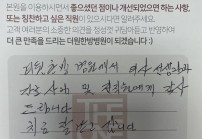 본원을 이용하시면서 좋으셨던 점이나 개선되었으면 하는 사항,
또는 칭찬하고 싶은 직원이 있으시다면 알려주세요.
고객 여러분의 소중한 의견을 정성껏 귀담아듣고 반영하여
더 큰 만족을 드리는 더원한방병원이 되겠습니다 :)
더원 한방 병원에서 의사 선생님과
간호사님 및 직원들에게 감사
드립니다
치료 잘 받고 갑니다